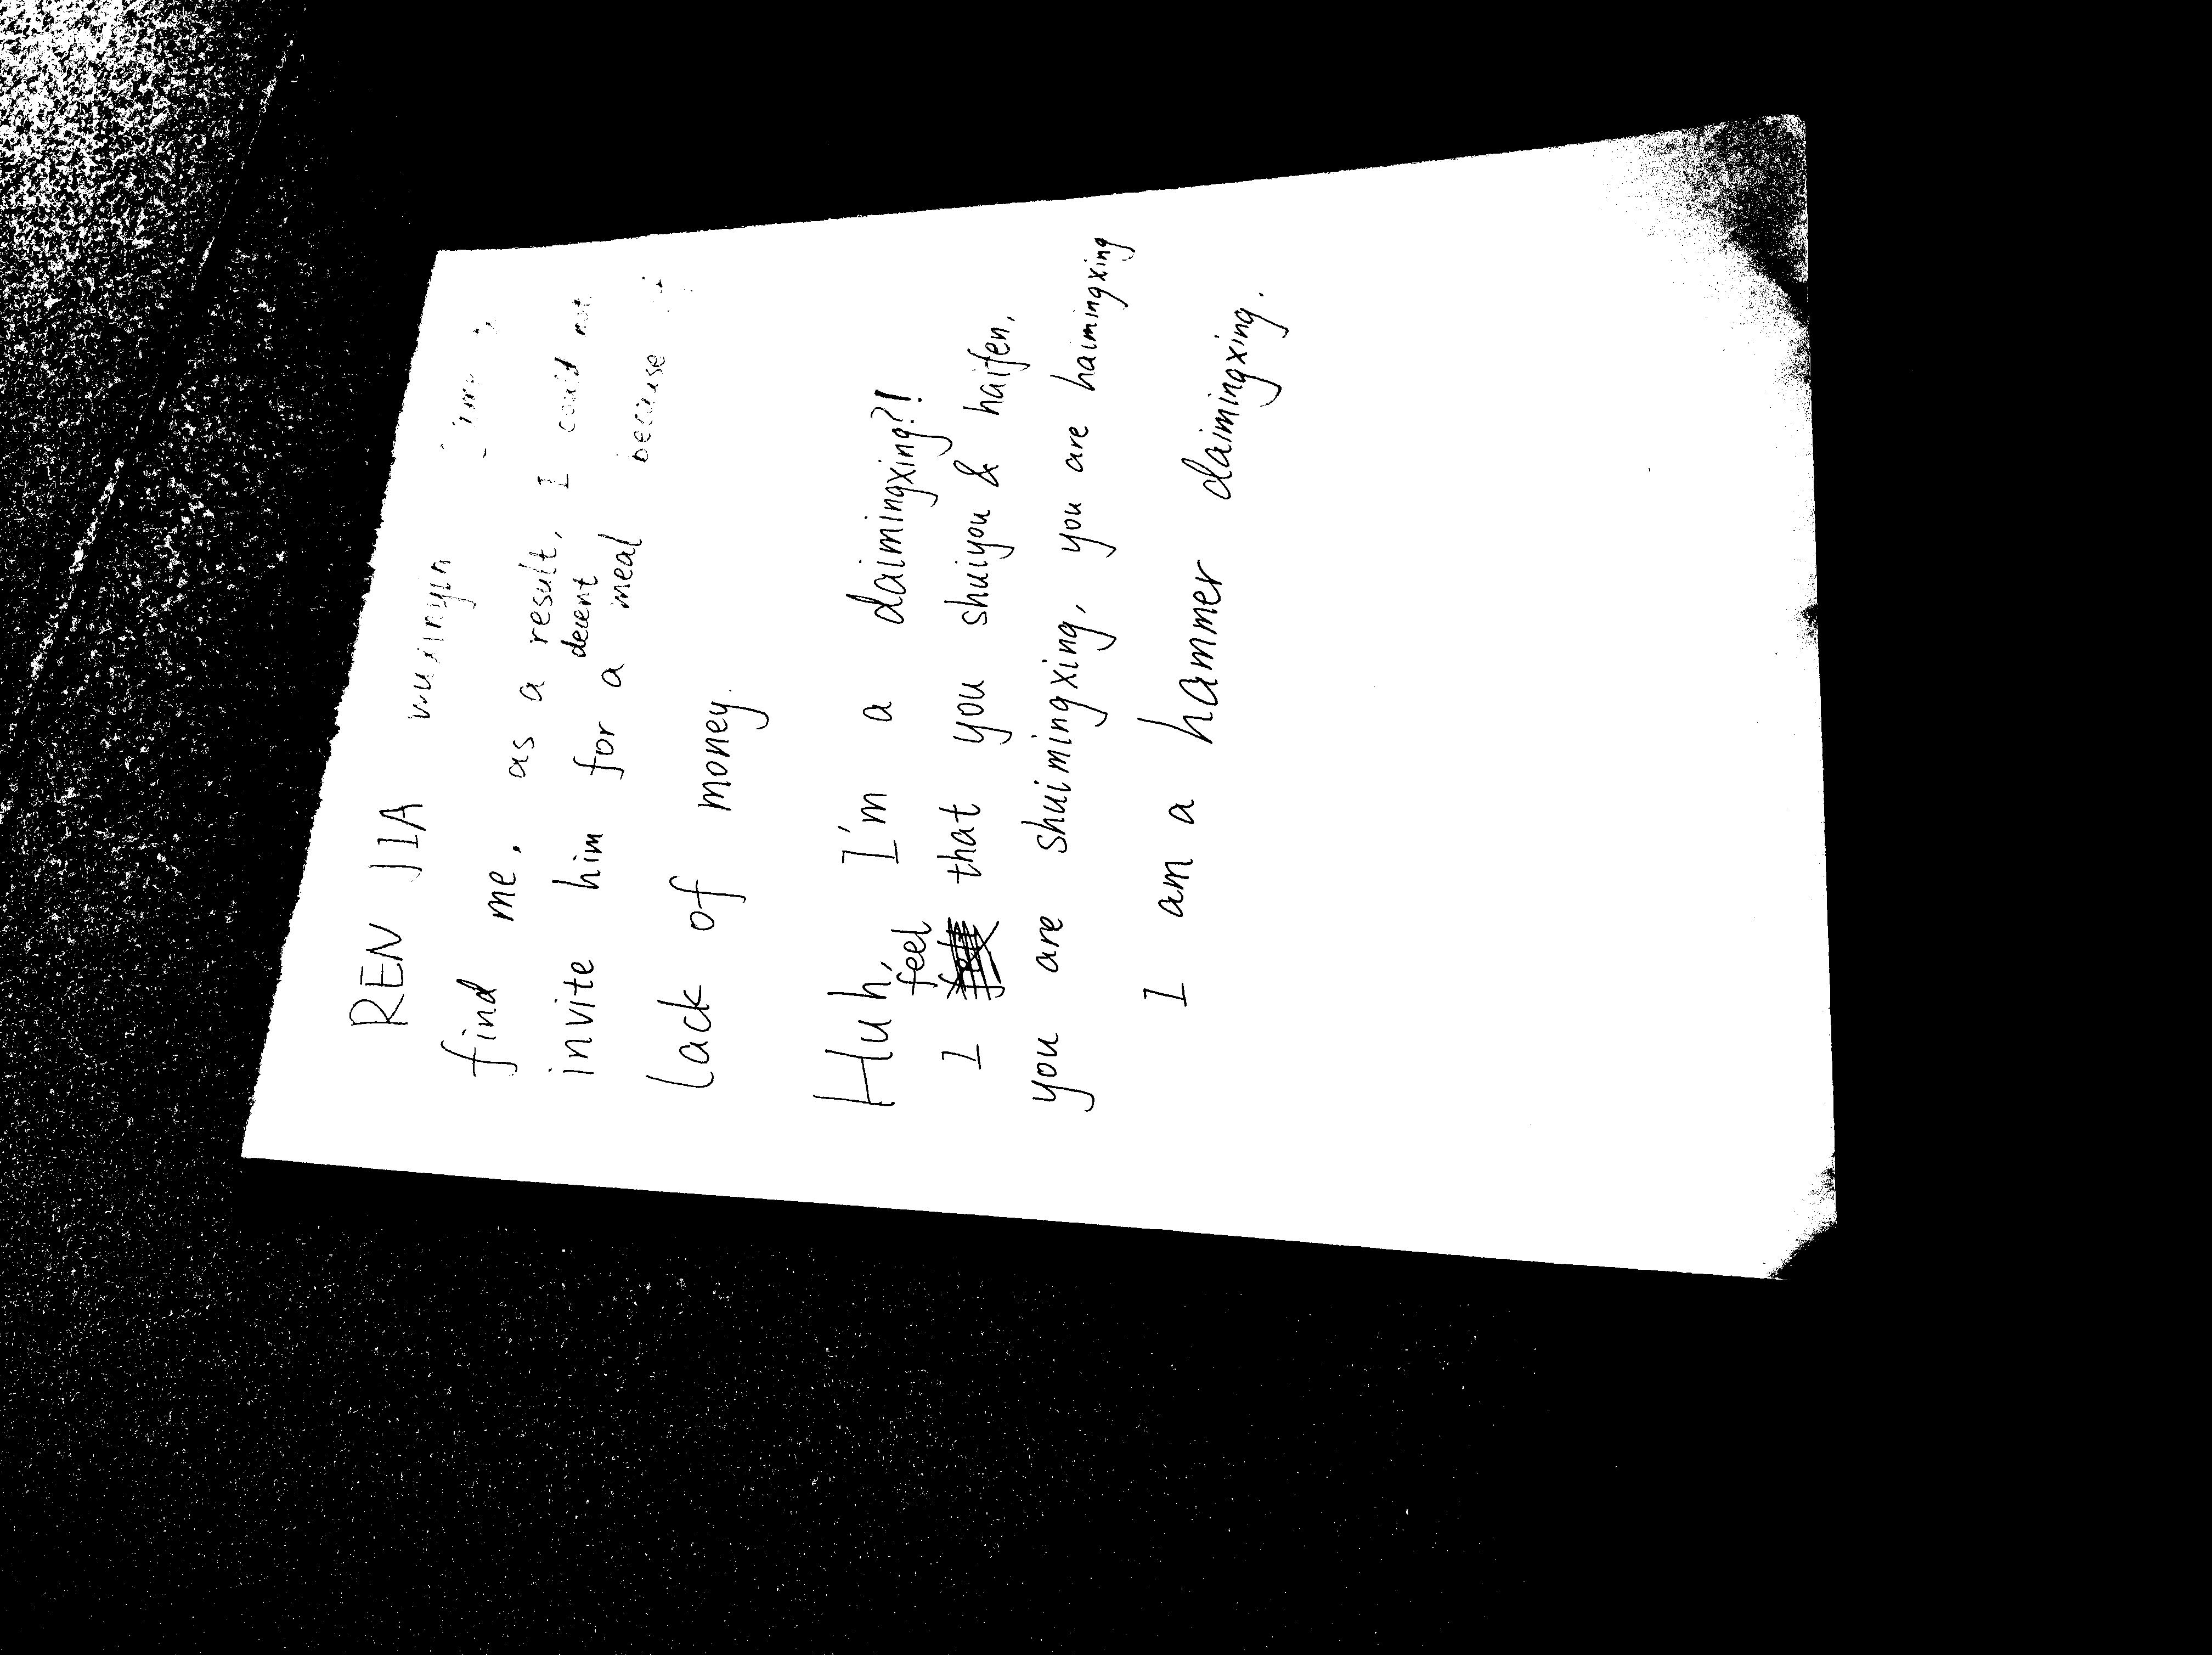 REN JIA wuxinyin
find me, as a result, I could not
invite him for a decent meal because
Lack of money.
Huh, I'm a daimingxing?!
I feel that you shuiyou & haifen,
you are shuimingxing, you are haimingxing
I am a hammer daimingxing.